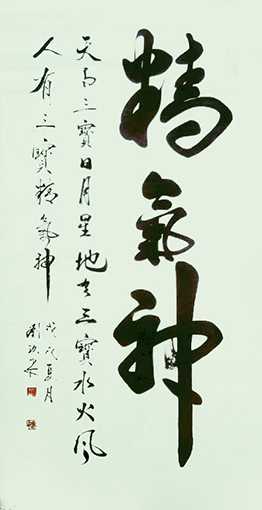 精氣神
天有三寶日月星地有三寶水火風
人有三寶精氣神
戊戌夏月